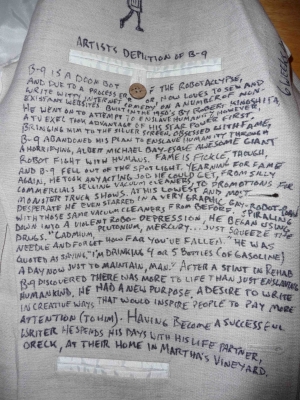 ARTISTS DEPICTION OF B-9
B-9 IS A DOOM BOT THE ROBOTACLYPSE,
AND DUE TO A PROCESSOR NOW LOVES TO SEW AND
WRITE WITTY INTERNET COMEDY ON A NUMBER OF NON-
EXISTANT WEBSITES. BUILT IN THE 1950'S BY ROBERT KINOSHITA,
HE WENT ON TO ATTEMPT TO ENSLAVE HUMANITY. HOWEVER,
A TV EXEC TOOK ADVANTAGE OF HIS STAR POWER FIRST,
BRINGING HIM TO THE SILVER SCREEN. OBSESSED WITH FAME,
B-9 ABANDONED HIS PLAN TO ENSLAVE HUMANITY THROUGH
A HORRIFYING, ALBEIT MICHAEL BAY-ESQUE AWESOME GIANT
ROBOT FIGHT WITH HUMANS. FAME IS FICKLE, THOUGH,
AND B-9 FELL OUT OF THE SPOTLIGHT. YEARNING FOR FAME
AGAIN, HE TOOK ANY ACTING JOB HE COULD GET, FROM SILLY
COMMERCIALS SELLING VACUUM CLEANERS, TO PROMOTIONS FOR
MONSTER TRUCK SHOWS. AT HIS LOWEST AND MOST
DESPERATE HE EVEN STARRED IN A VERY GRAPHIC GAY-ROBOT
WITH THOSE SAME VACUUM CLEANERS FROM BEFORE. SPIRALING
DOWN INTO A VIOLENT ROBO-DEPRESSION, HE BEGAN USING
DRUGS. "CADMIUM, PLUTONIUM, MERCURY... JUST SQUEEZE THE
NEEDLE AND FORGET HOW FAR YOU'VE FALLEN." HE WAS
QUOTED AS SAYING, "I'M DRINKING 4 OR 5 BOTTLES (OF GASOLINE)
A DAY NOW JUST TO MAINTAIN, MAN." AFTER A STINT IN REHAB
B-9 DISCOVERED THERE WAS MORE TO LIFE THAN JUST ENSLAVING
HUMANKIND, HE HAD A NEW PURPOSE, A DESIRE TO WRITE
IN CREATIVE WAYS THAT WOULD INSPIRE PEOPLE TO PAY MORE
ATTENTION (TO HIM). HAVING BECOME A SUCCESSFUL
WRITER HE SPENDS HIS DAYS WITH HIS LIFE PARTNER,
ORECK, AT THEIR HOME IN MARTHA'S VINEYARD.